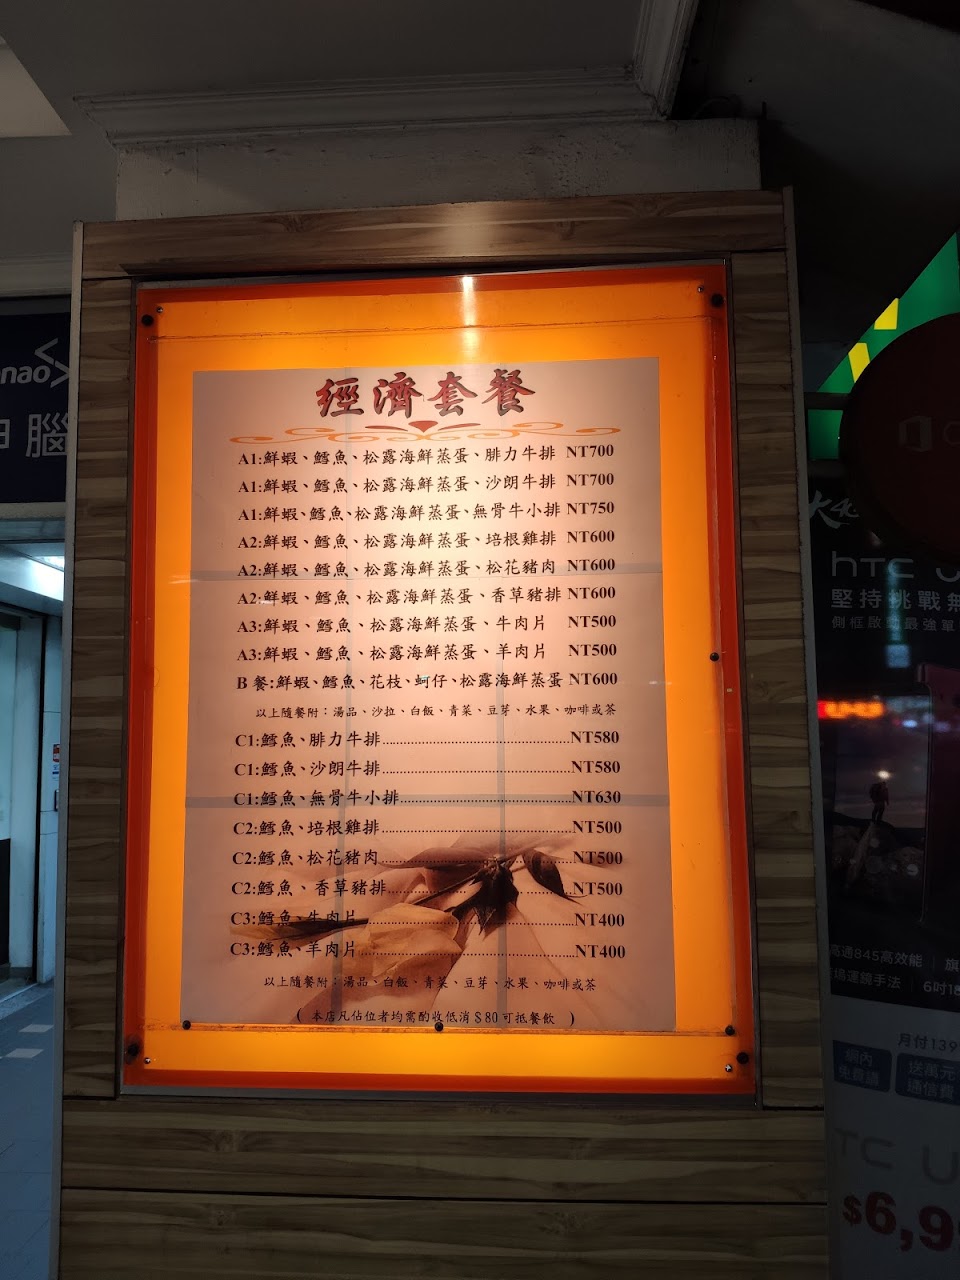 經濟套餐
A1:鮮蝦、鱈魚、松露海鮮蒸蛋、腓力牛排 NT700
A1:鮮蝦、鱈魚、松露海鮮蒸蛋、沙朗牛排 NT700
A1:鮮蝦、鱈魚、松露海鮮蒸蛋、無骨牛小排 NT750
A2:鮮蝦、鱈魚、松露海鮮蒸蛋、培根雞排 NT600
A2:鮮蝦、鱈魚、松露海鮮蒸蛋、松花豬肉 NT600
A2:鮮蝦、鱈魚、松露海鮮蒸蛋、香草豬排 NT600
A3:鮮蝦、鱈魚、松露海鮮蒸蛋、牛肉片 NT500
A3:鮮蝦、鱈魚、松露海鮮蒸蛋、羊肉片 NT500
B餐:鮮蝦、鱈魚、花枝、蚵仔、松露海鮮蒸蛋 NT600
以上隨餐附：湯品、沙拉、白飯、青菜、豆芽、水果、咖啡或茶
C1:鱈魚、腓力牛排........................................NT580
C1:鱈魚、沙朗牛排........................................NT580
C1:鱈魚、無骨牛小排....................................NT630
C2:鱈魚、培根雞排........................................NT500
C2:鱈魚、松花豬肉........................................NT500
C2:鱈魚、香草豬排........................................NT500
C3:鱈魚、牛肉片............................................NT400
C3:鱈魚、羊肉片............................................NT400
以上隨餐附：湯品、白飯、青菜、豆芽、水果、咖啡或茶
( 本店凡佔位者均需酌收低消$80可抵餐飲 )
nao
腦
htc U
堅持挑戰無
側框啟動最強單
高通845高效能 | 旗
運鏡手法 | 6吋18
月付139
網內
免費講
送萬元
通信費
TC U
$6,9